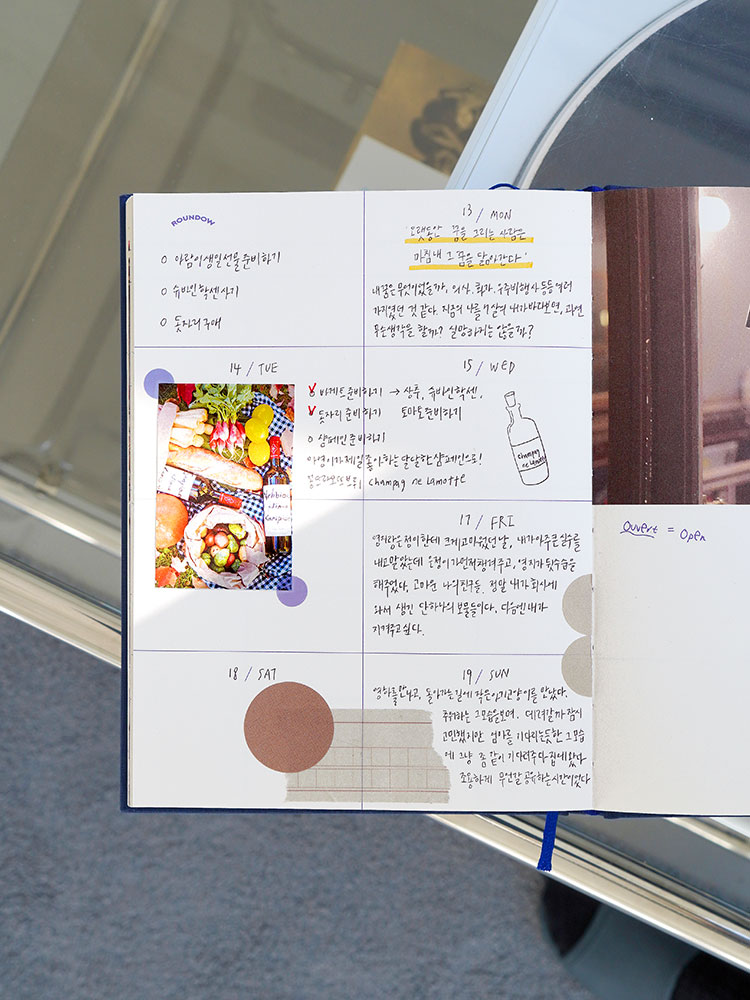 ROUNDOW
o 아람이 생일선물 준비하기
o 슈바인학센 사기
o 돗자리 구매
13 / MON
"오랫동안 꿈을 그리는 사람은
마침내 그 꿈을 닮아간다"
내 꿈은 무엇이었을까, 의사, 화가, 우주비행사 등등 여러
가지였던 것 같다. 지금의 나를 7살의 내가 바라보면, 과연
무슨생각을 할까? 실망하지는 않을까?
14 / TUE
15 / WED
바게트 준비하기 → 상추, 슈바인학센,
돗자리 준비하기 토마토 준비하기
o 샴페인 준비하기
제일 좋아하는 달달한 샴페인으로!
champag de lamotte
champag
de lamotte
17 / FRI
은정이한테 크게 고마웠던 날, 내가 아주 큰 실수를
내고 말았는데 은정이가 먼저 챙겨주고, 영지가 뒷수습을
해주었다. 고마운 나의 친구들. 정말 내가 회사에
와서 생긴 단 하나의 보물들이다. 다음엔 내가
지켜주고 싶다.
18 / SAT
19 / SUN
영화를 만나고, 돌아가는 길에 작은 아기고양이를 만났다.
추워하는 그 모습을 보며, 데려갈까 잠시
고민했지만 엄마를 기다리는듯한 그 모습
에 그냥 좀 같이 기다려주다 집에 왔다
조용하게 무언갈 공유하는 시간이었다
Ouvert = Open